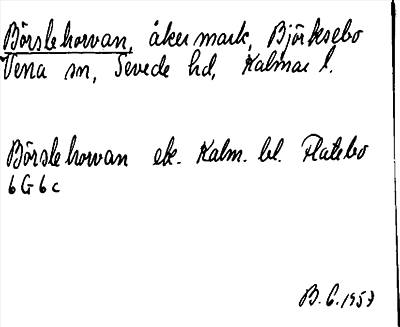 Börslehorvan, åkermark, Björksebo
Vena sn, Sevede hd, Kalmar l.
Börslehorvan ek. Kalm. bl. Flatebo
6G6c
B. E. 1957